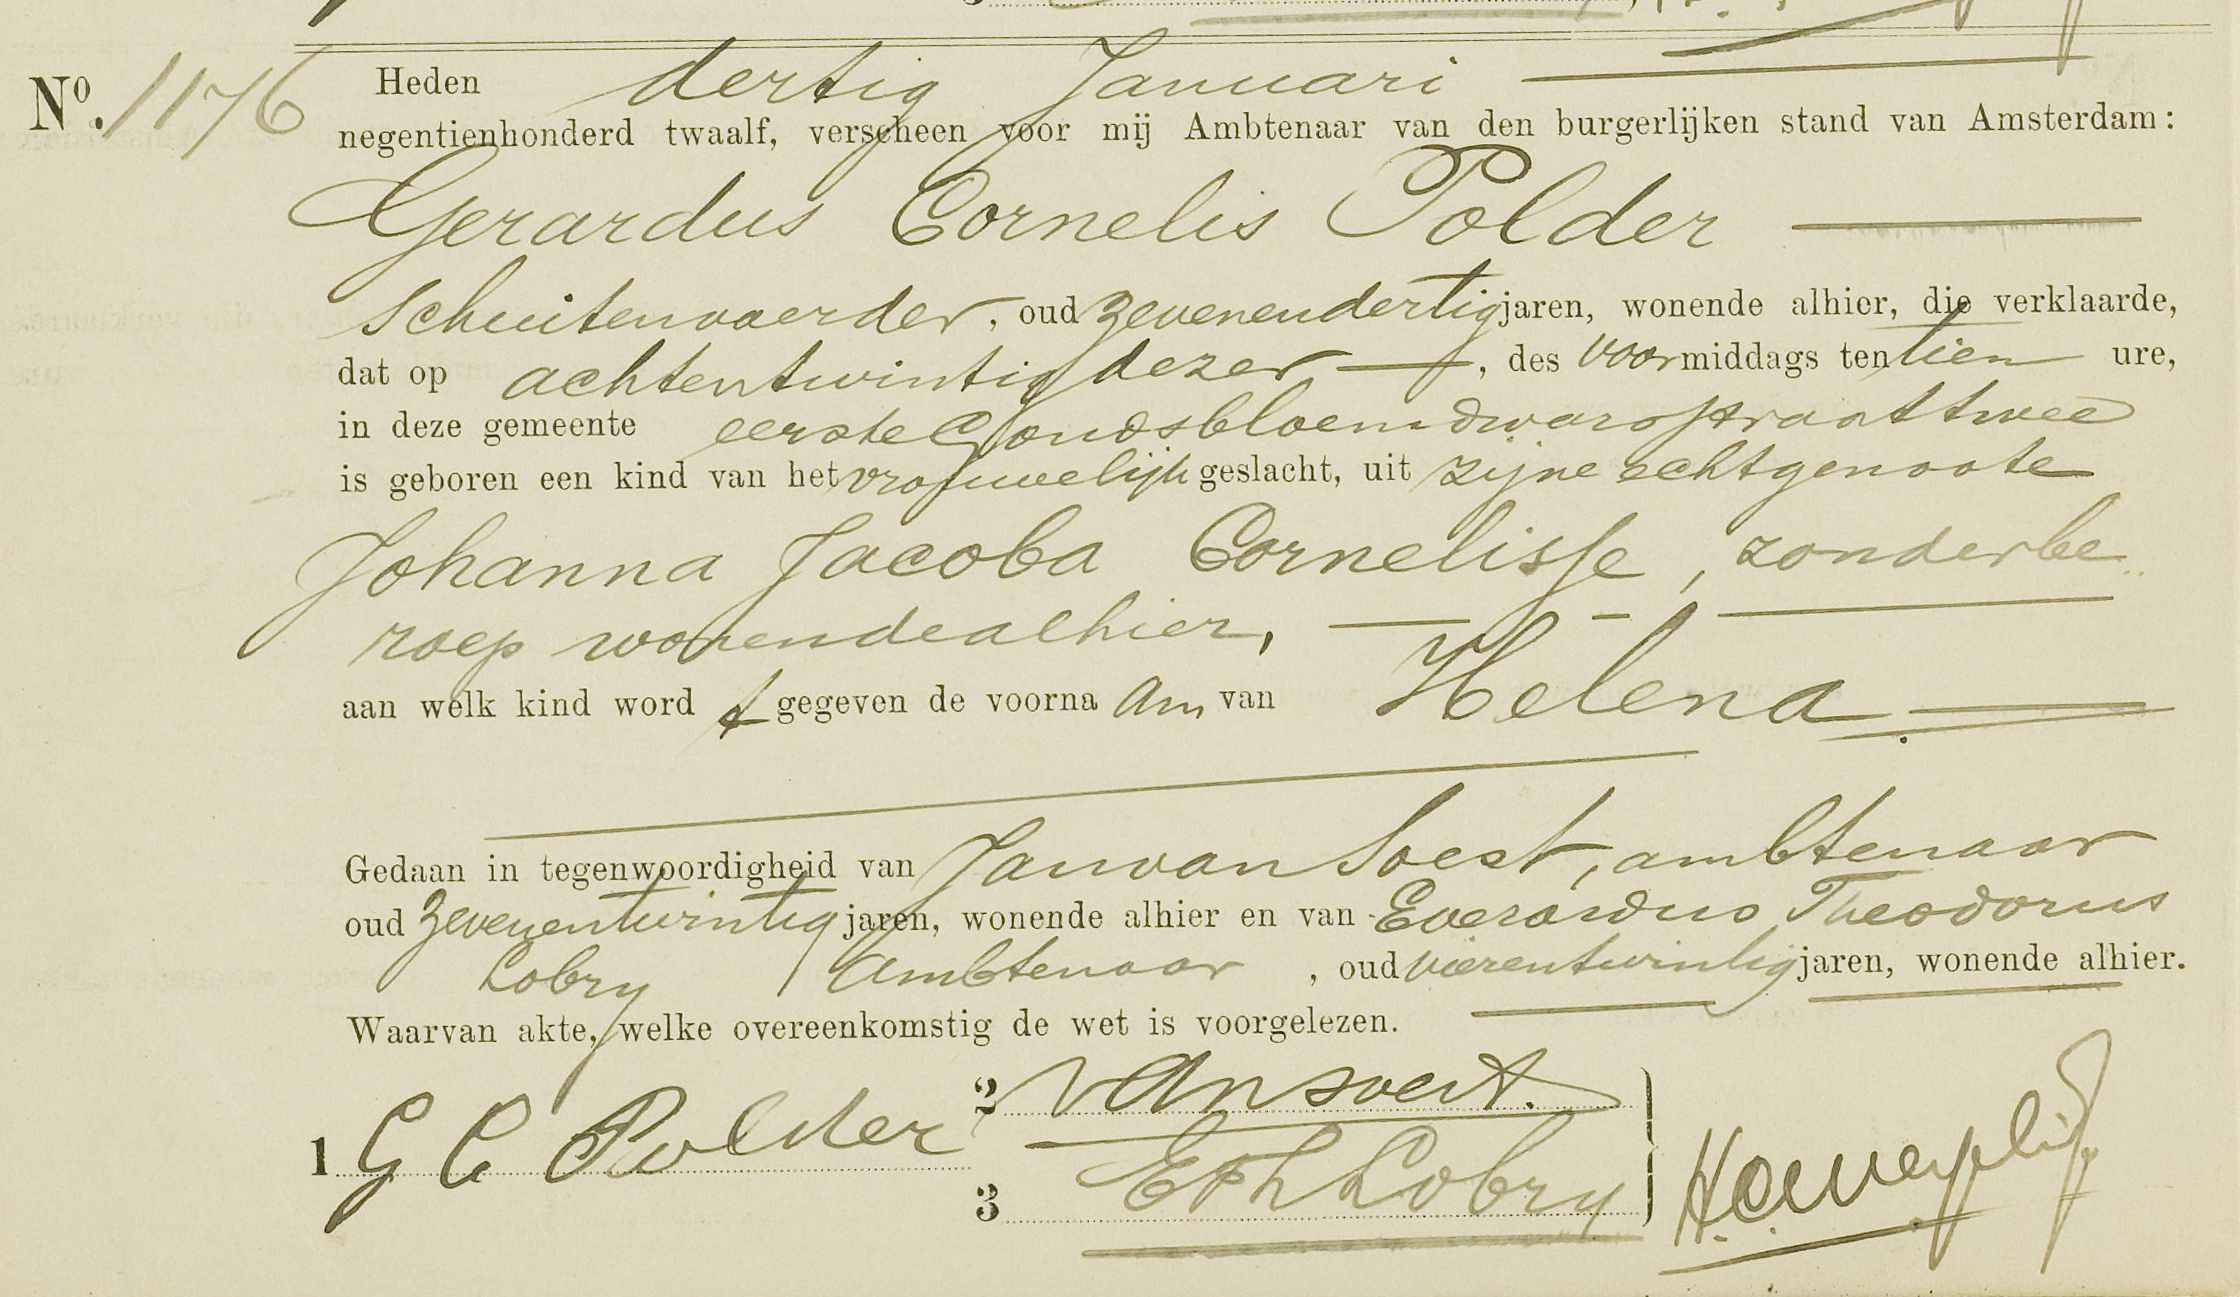 Nº. 1176 Heden dertig Januari
negentienhonderd twaalf, verscheen voor mij Ambtenaar van den burgerlijken stand van Amsterdam:
Gerardus Cornelis Polder
Schuitenvoerder, oud zevenendertig jaren, wonende alhier, die verklaarde,
dat op achtentwintig dezer, des voormiddags ten tien ure,
in deze gemeente eerste Goudsbloemdwarsstraat twee
is geboren een kind van het vrouwelijk geslacht, uit zijne echtgenoote
Johanna Jacoba Cornelisse, zonder be
roep wonende alhier,
aan welk kind word t gegeven de voorna am van Helena
Gedaan in tegenwoordigheid van Jan van Soest, ambtenaar
oud zevenentwintig jaren, wonende alhier en van Everardus Theodorus
Lobry Ambtenaar, oud vierentwintig jaren, wonende alhier.
Waarvan akte, welke overeenkomstig de wet is voorgelezen.
1 G C Polder
2 van Soest.
3 E Th Lobry